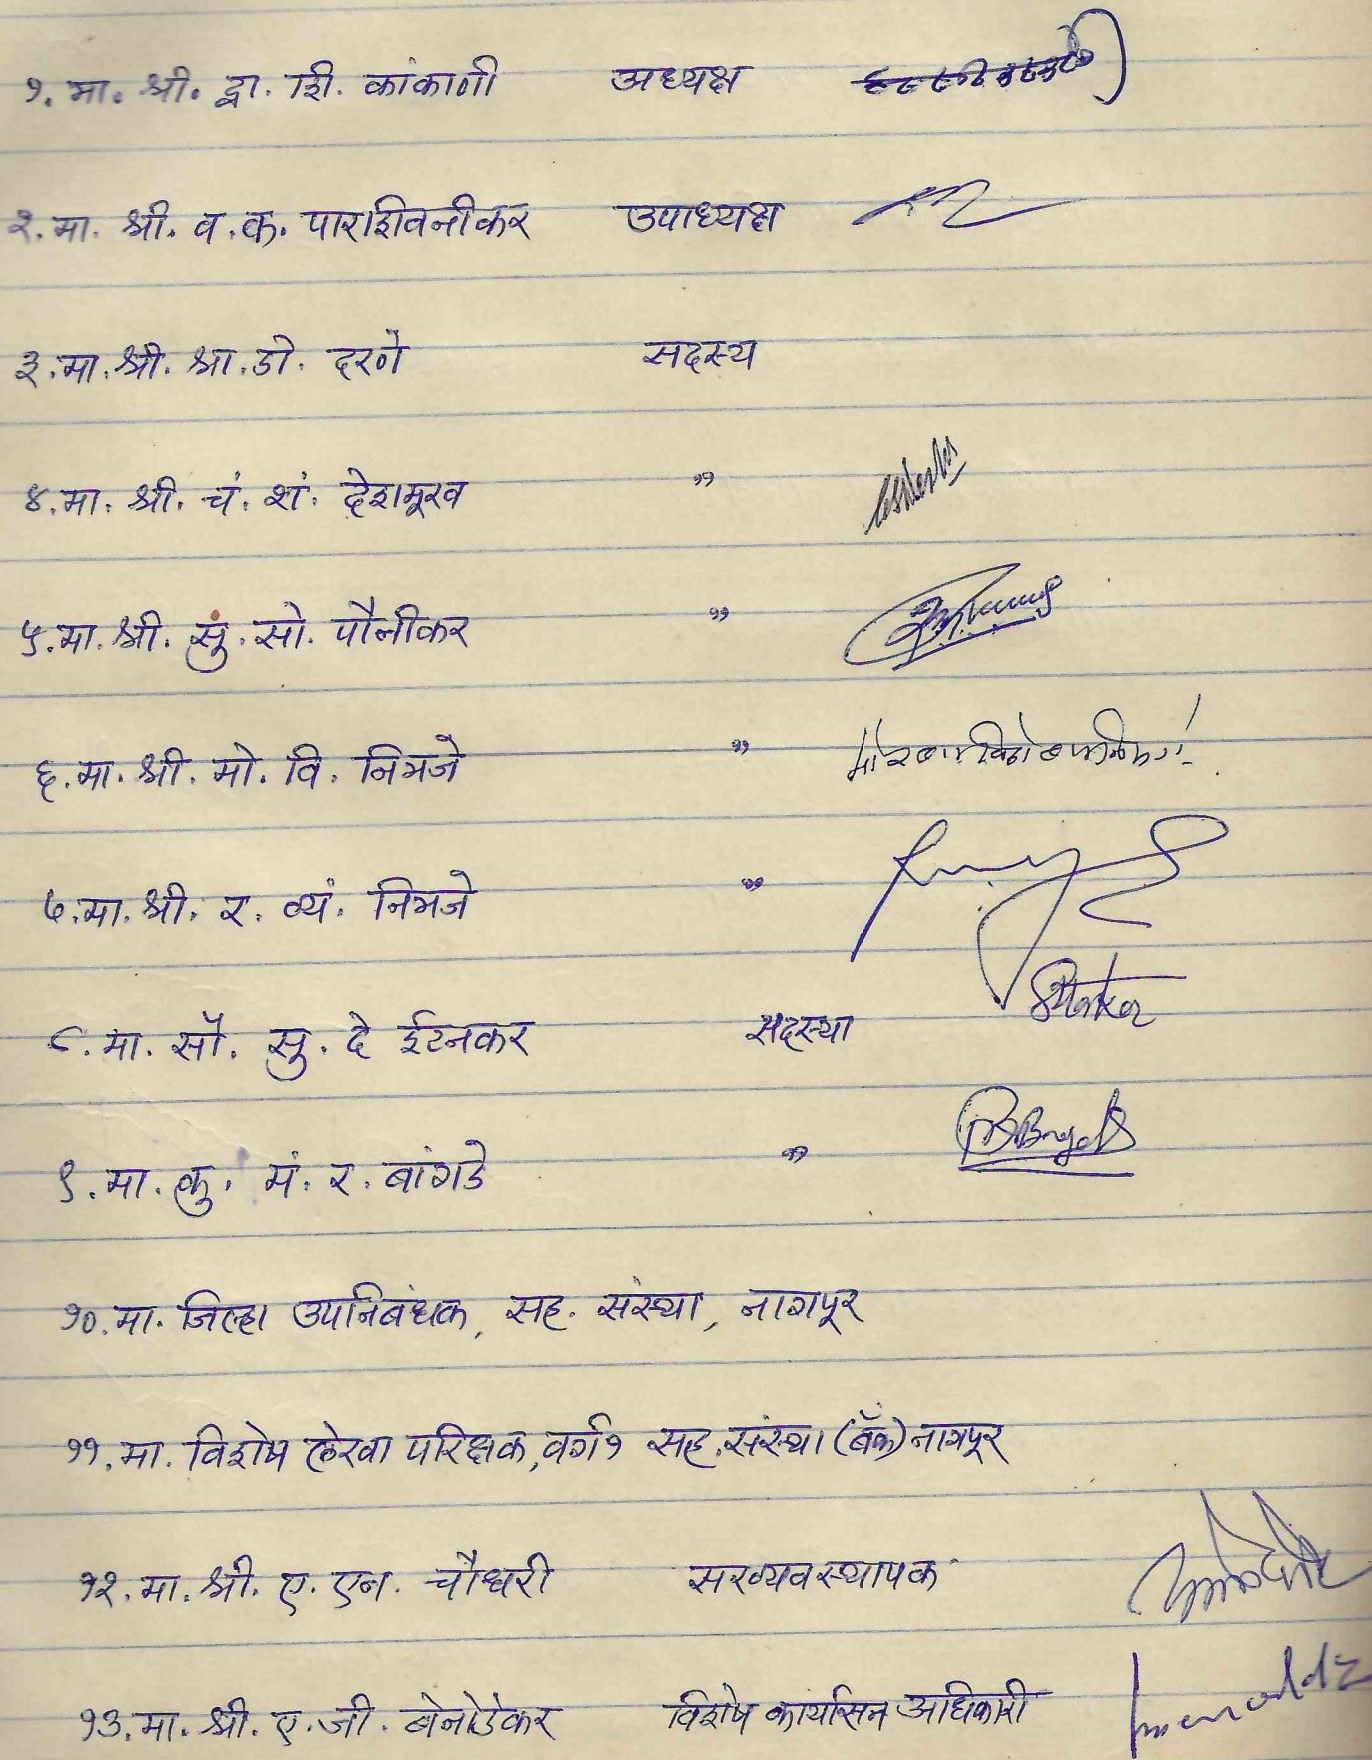 १. मा. श्री. द्वा. शि. कांकाणी अध्यक्ष
२. मा. श्री. व. क. पाराशिवनीकर उपाध्यक्ष
३. मा. श्री. श्रा. डो. दरणे सदस्य
४. मा. श्री. चं. शं. देशमूख "
५. मा. श्री. सुं. सो. पौनीकर "
६. मा. श्री. मो. वि. निमजे "
७. मा. श्री. र. व्यं. निमजे "
८. मा. सौ. सु. दे ईटनकर सदस्या
९. मा. कु. मं. र. बांगडे "
१०. मा. जिल्हा उपनिबंधक, सह. संस्था, नागपूर
११. मा. विशेष लेखा परिक्षक, वर्ग १ सह. संस्था (बँक) नागपूर
१२. मा. श्री. ए. एन. चौधरी सरव्यवस्थापक
१३. मा. श्री. ए. जी. बेनोडेकर विशेष कार्यासन अधिकारी